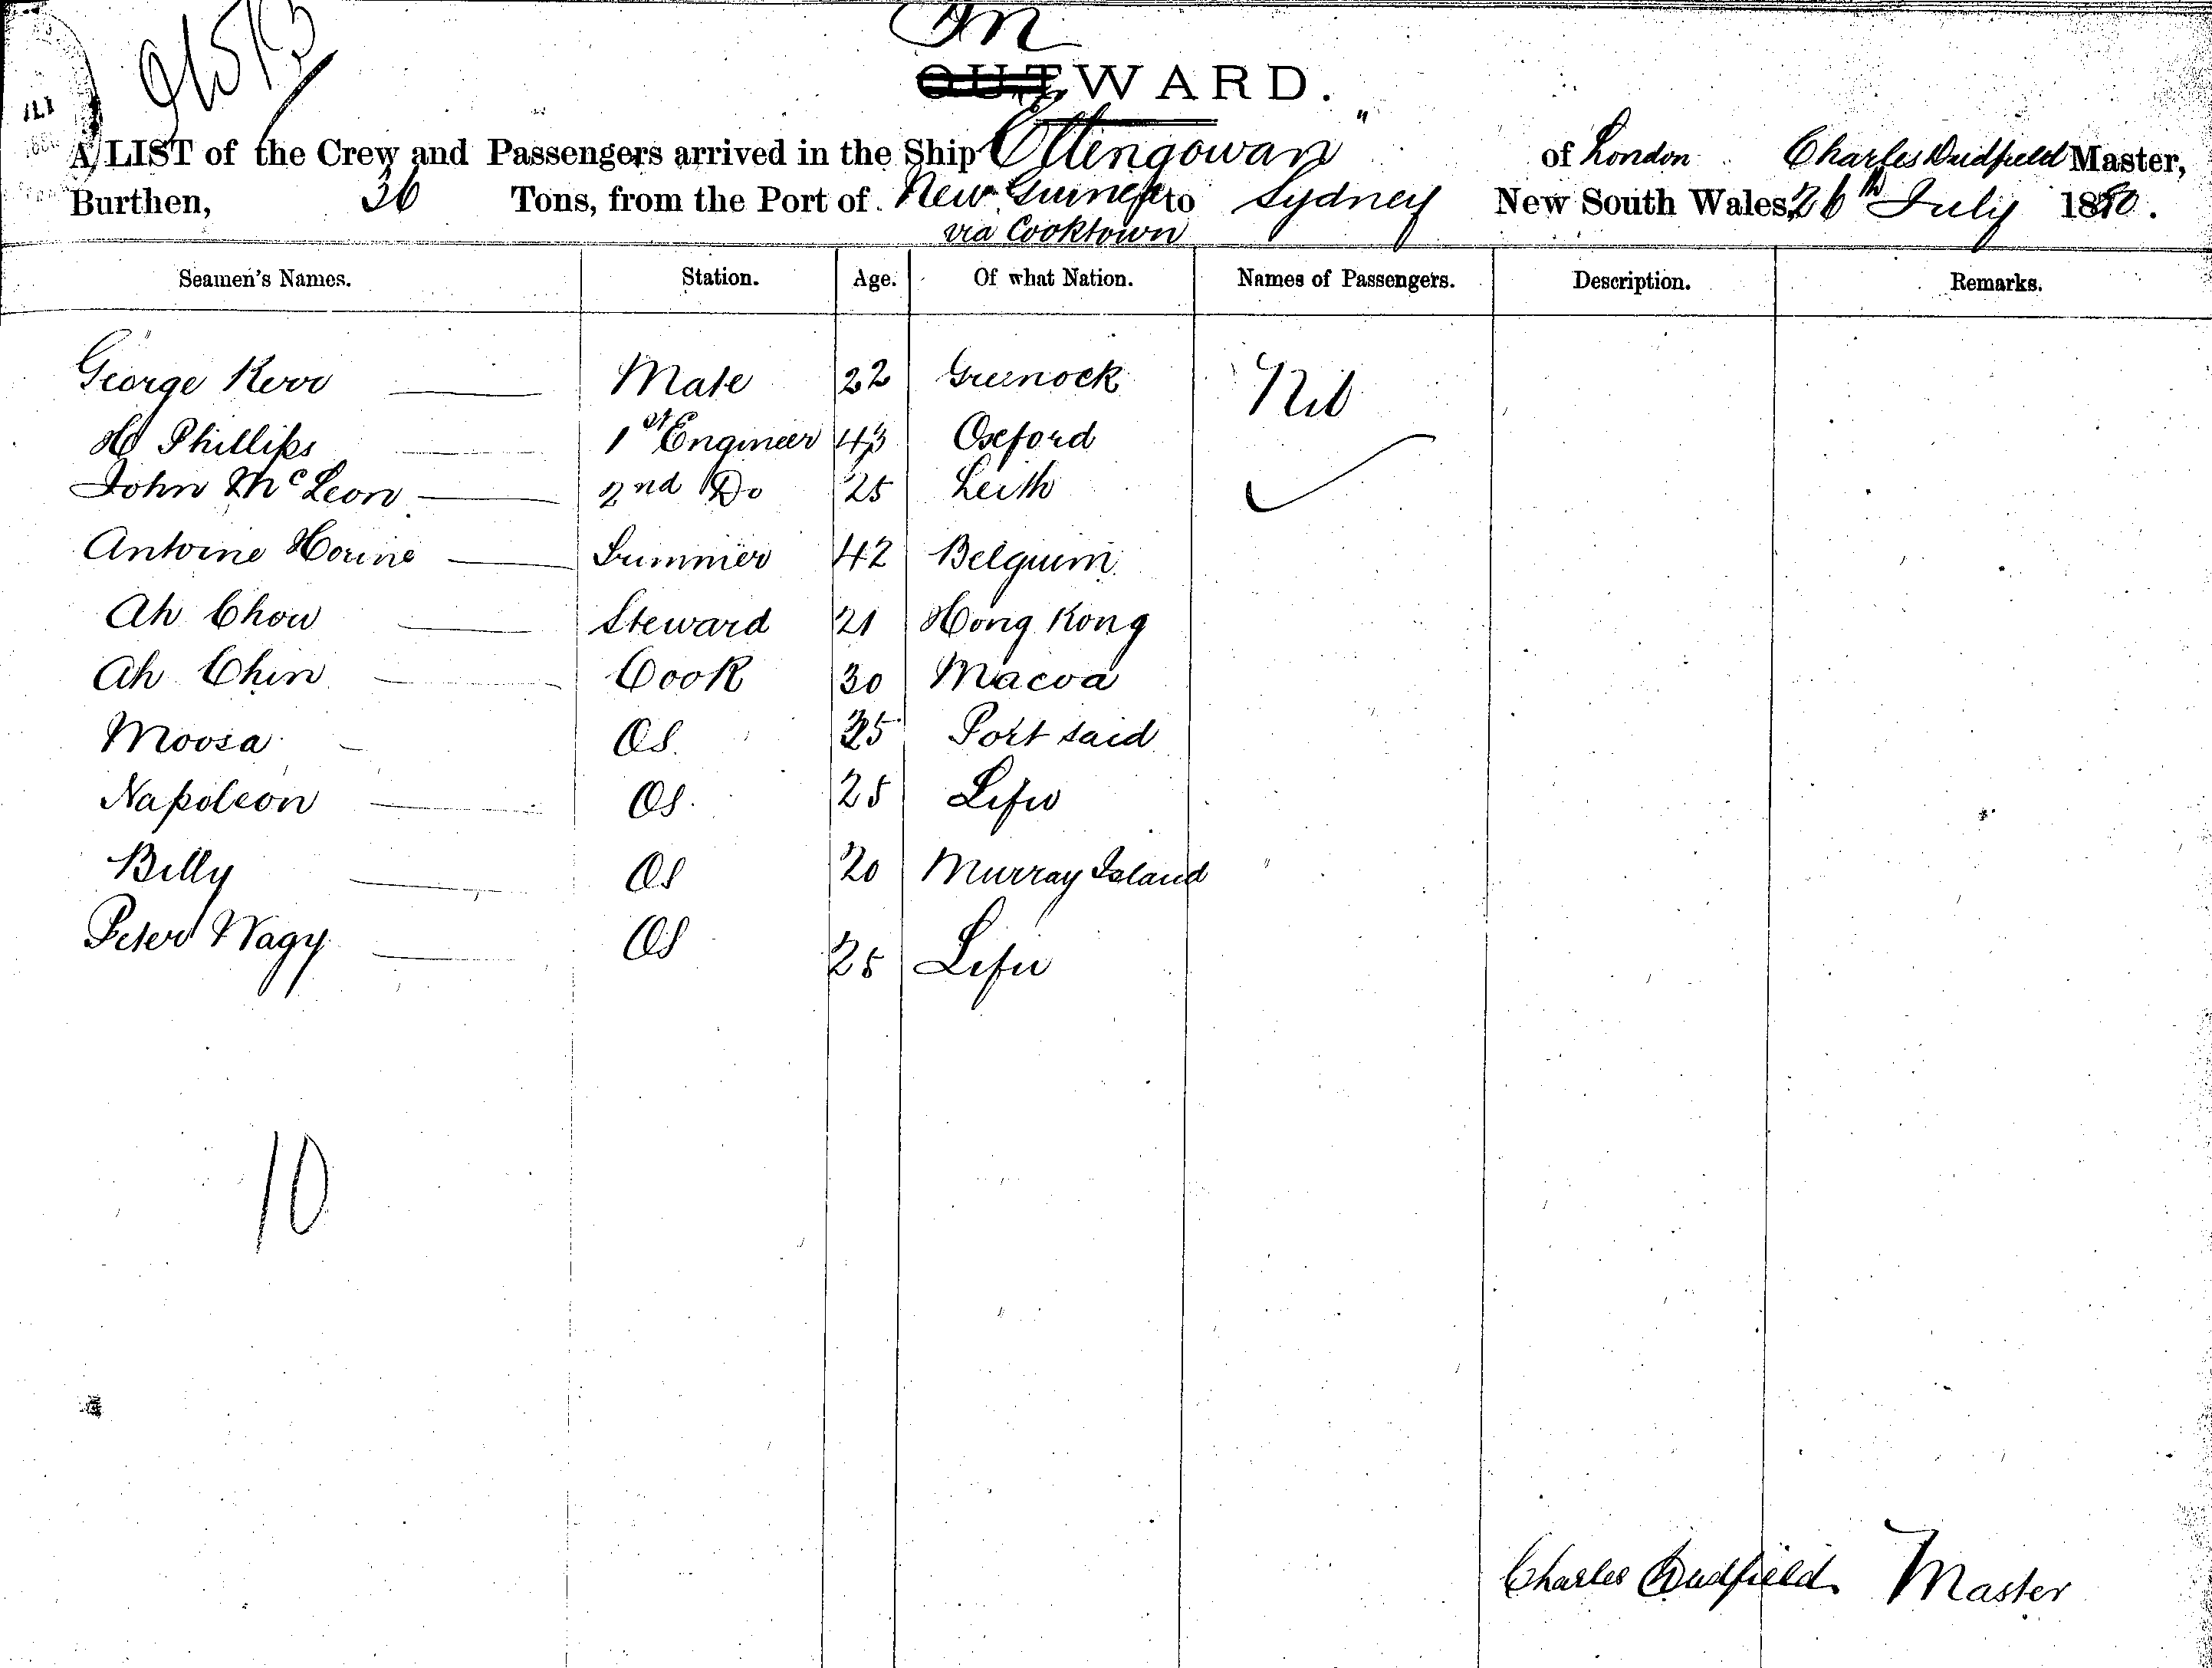 In
OUTWARD.
A LIST of the Crew and Passengers arrived in the Ship "Ellengowan" of London Charles Dudfield Master,
Burthen, 36 Tons, from the Port of New Guinea to Sydney New South Wales, 26th July 1880.
via Cooktown
Seamen's Names. Station. Age. Of what Nation. Names of Passengers. Description. Remarks.
George Kerr Mate 22 Greenock Nil
H Phillips 1st Engineer 43 Oxford
John McLeon 2nd Do 25 Leith
Antoine Horine 42 Belgium
Ah Chow Steward 21 Hong Kong
Ah Chin Cook 30 Macoa
Moosa OS. 25 Port Said
Napoleon OS. 25 Lifu
Billy OS 20 Murray Island
Peter Wagy OS 25 Lifu
10
Charles Dudfield Master